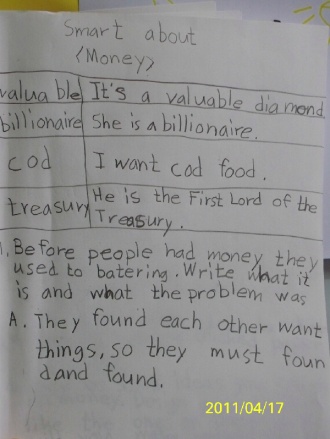 Smart about
<Money>
valuable It's a valuable diamond
billionaire She is a billionaire.
cod I want cod food.
treasury He is the First Lord of the
Treasury.
1, Before people had money they
used to batering. Write what it
is and what the problem was
A. They found each other want
things, so they must foun
dand found.
2011/04/17